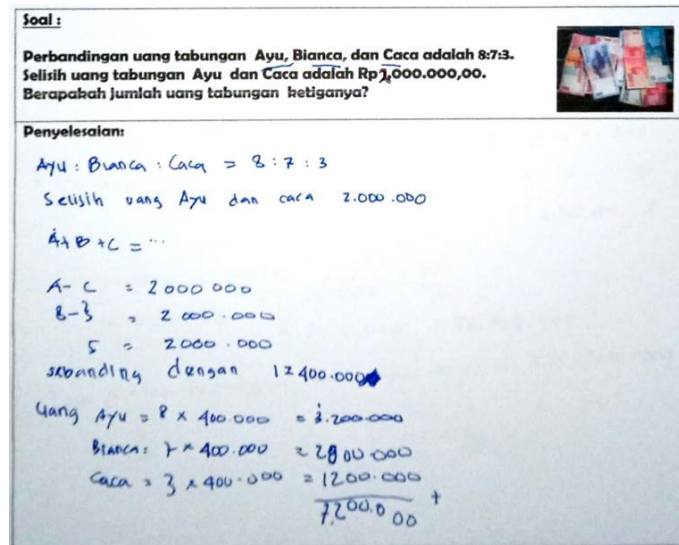 Soal :
Perbandingan uang tabungan Ayu, Bianca, dan Caca adalah 8:7:3.
Selisih uang tabungan Ayu dan Caca adalah Rp2.000.000,00.
Berapakah jumlah uang tabungan ketiganya?
Penyelesaian:
Ayu : Bianca : Caca = 8 : 7 : 3
Selisih uang Ayu dan caca 2.000.000
A+B+C = ...
A- C = 2000000
8-3 = 2000.000
5 = 2000.000
sebanding dengan 1=400.000
Uang Ayu = 8 x 400.000 = 3.200.000
Bianca: 7 x 400.000 = 2800000
Caca = 3 x 400.000 = 1200.000
+
7.200.000